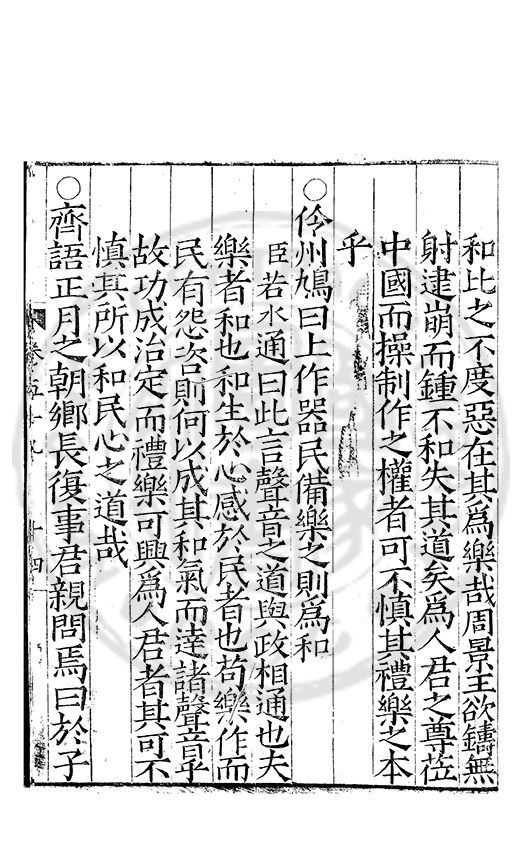 和比之不度惡在其為樂哉周景王欲鑄無
射逮崩而鍾不和失其道矣為人君之尊莅
中國而操制作之權者可不慎其禮樂之本
乎
○伶州鳩曰上作器民備樂之則為和
臣若水通曰此言聲音之道與政相通也夫
樂者和也和生於心感於民者也苟樂作而
民有怨咨則何以成其和氣而達諸聲音乎
故功成治定而禮樂可興為人君者其可不
慎其所以和民心之道哉
○齊語正月之朝鄉長復事君親問焉曰於子
卷五十九 十四